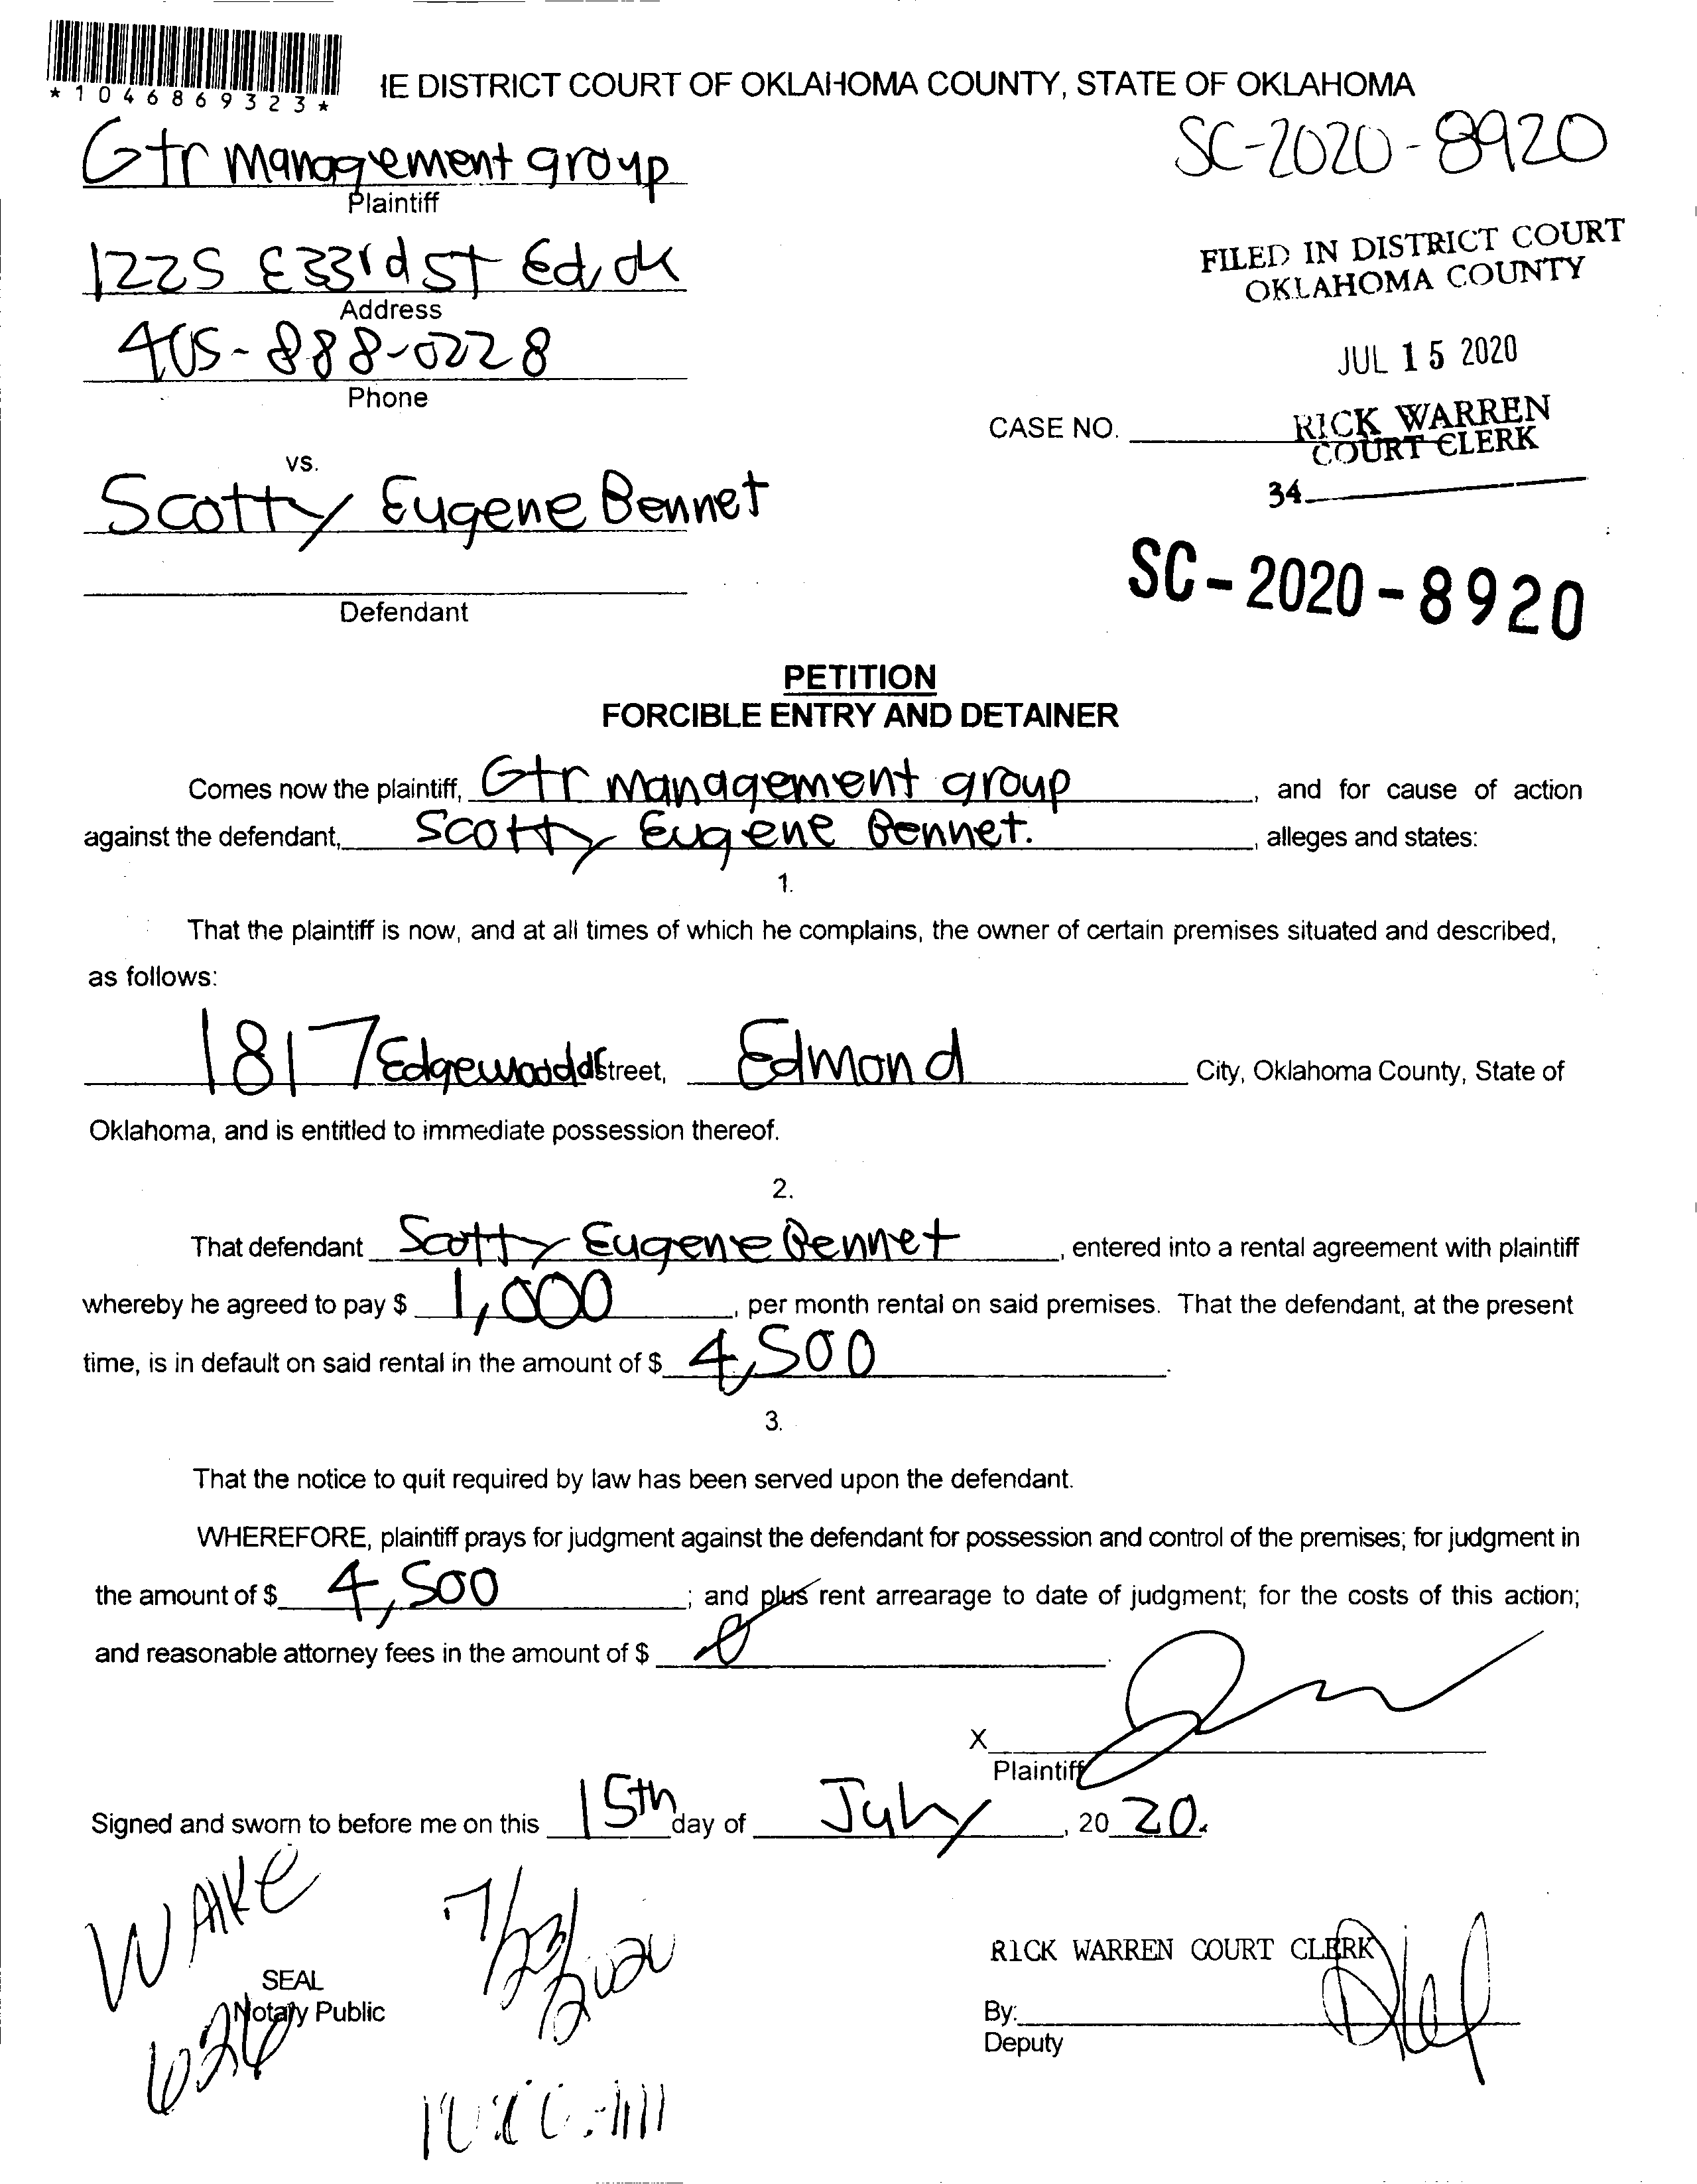 *1046869323*
IE DISTRICT COURT OF OKLAHOMA COUNTY, STATE OF OKLAHOMA
Gtr management group
Plaintiff
SC-2020-8920
1225 E 33rd ST Ed, OK
Address
405-888-0228
Phone
FILED IN DISTRICT COURT
OKLAHOMA COUNTY
JUL 15 2020
CASE NO.
RICK WARREN
COURT CLERK
34
vs.
Scotty Eugene Bennet
Defendant
SC-2020-8920
PETITION
FORCIBLE ENTRY AND DETAINER
Comes now the plaintiff, Gtr management group, and for cause of action
against the defendant, Scotty Eugene Bennet., alleges and states:
1.
That the plaintiff is now, and at all times of which he complains, the owner of certain premises situated and described,
as follows:
1817 Edgewood Street, Edmond City, Oklahoma County, State of
Oklahoma, and is entitled to immediate possession thereof.
2.
That defendant Scotty Eugene Bennet, entered into a rental agreement with plaintiff
whereby he agreed to pay $ 1,000, per month rental on said premises. That the defendant, at the present
time, is in default on said rental in the amount of $ 4,500.
3.
That the notice to quit required by law has been served upon the defendant.
WHEREFORE, plaintiff prays for judgment against the defendant for possession and control of the premises; for judgment in
the amount of $ 4,500; and plus rent arrearage to date of judgment; for the costs of this action;
and reasonable attorney fees in the amount of $ 0.
X
Plaintiff
Signed and sworn to before me on this 15th day of July, 2020.
WAIKE
7/23/2020
SEAL
Notary Public
626
RICK WARREN COURT CLERK
By:
Deputy